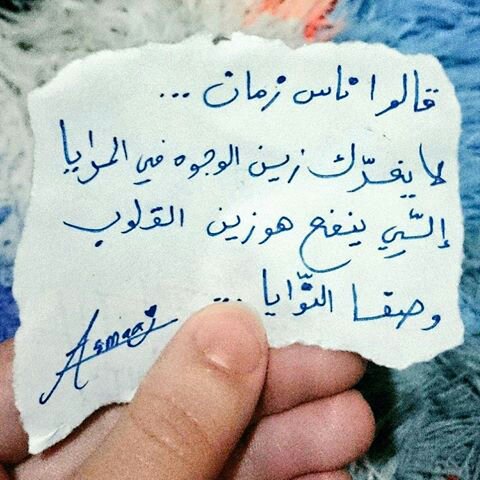 قالوا ناس زمان ...
لا يغرّك زين الوجوه في المرايا
إلّي ينفع هو زين القلوب
وصفا النّوايا ...
Asmaaj